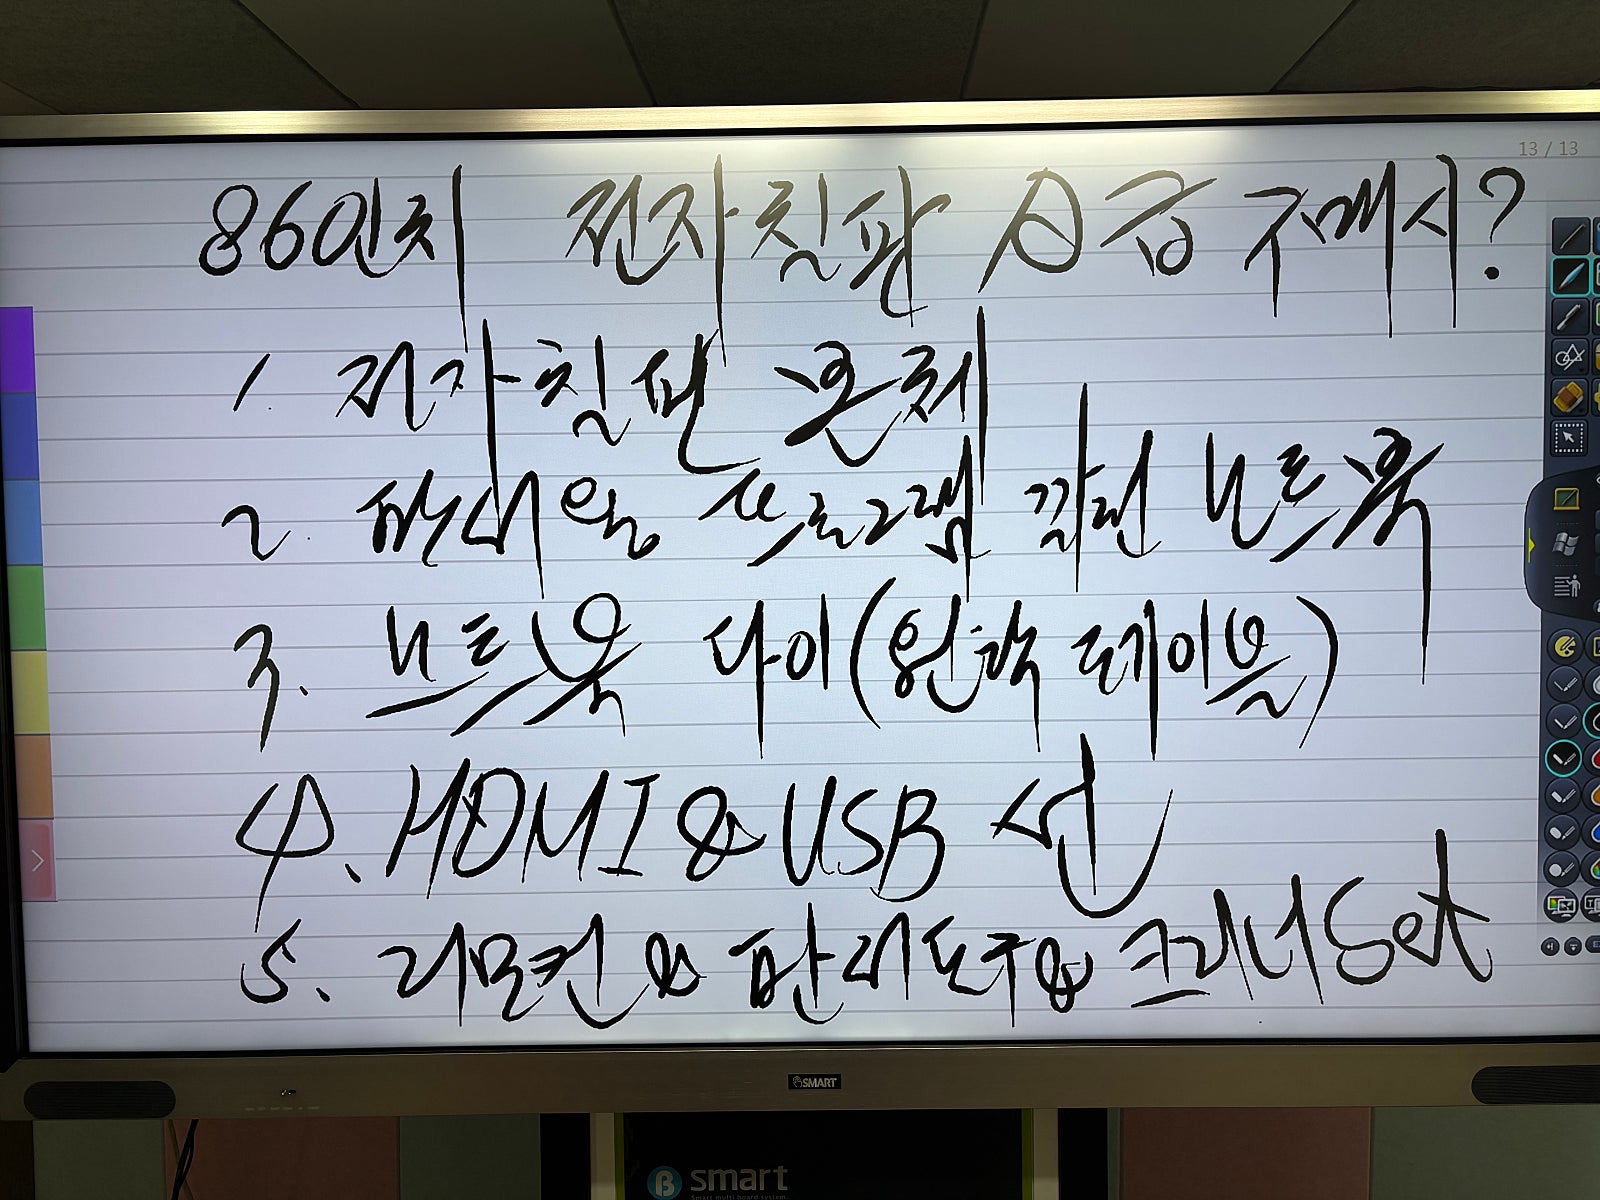 13 / 13
86인치 전자칠판 A급 구매시?
1. 전자칠판 본체
2. 판서용 프로그램 깔린 노트북
3. 노트북 다이(원탁 테이블)
4. HDMI & USB 선
5. 리모컨 & 판서도구 & 크리너 Set
SMART
smart
Smart multi board system